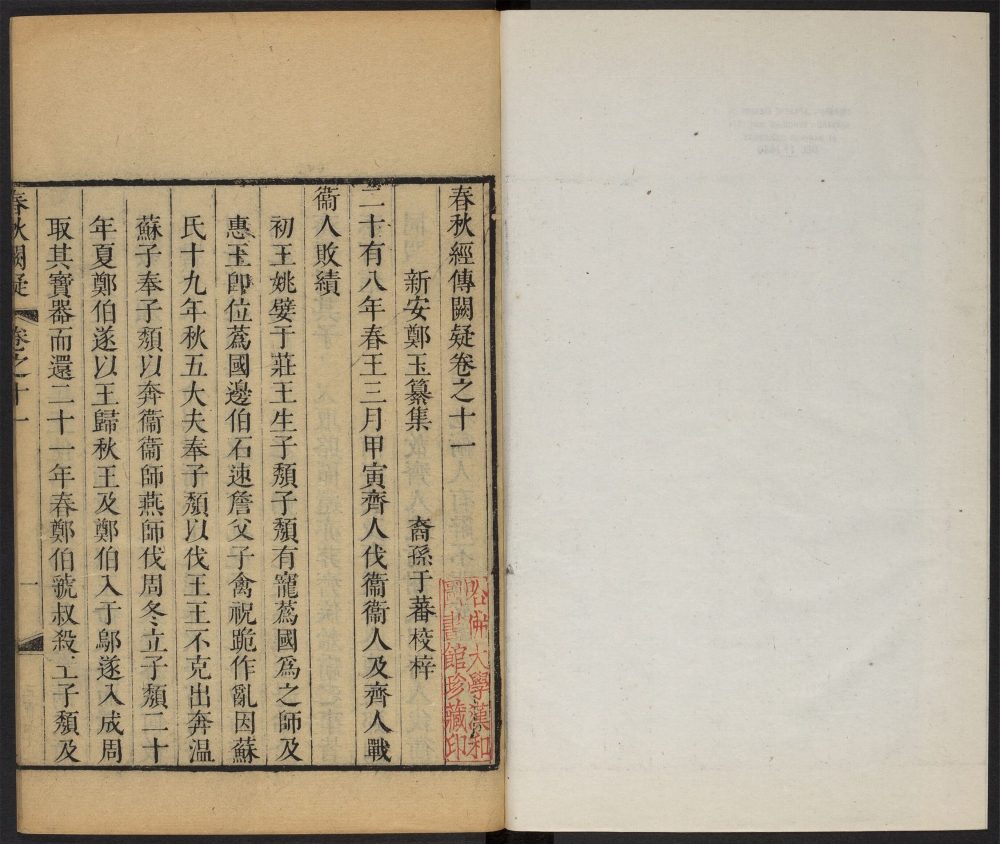 春秋經傳闕疑卷之十一
新安鄭玉纂集 裔孫于蕃校梓
二十有八年春王三月甲寅齊人伐衞衞人及齊人戰
衞人敗績
初王姚嬖于莊王生子頹子頹有寵蔿國爲之師及
惠王卽位蔿國邊伯石速詹父子禽祝跪作亂因蘇
氏十九年秋五大夫奉子頹以伐王王不克出奔溫
蘇子奉子頹以奔衞衞師燕師伐周冬立子頹二十
年夏鄭伯遂以王歸秋王及鄭伯入于鄔遂入成周
取其寶器而還二十一年春鄭伯虢叔殺王子頹及
春秋闕疑 卷之十一
一
哈佛大學漢和
圖書館珍藏印